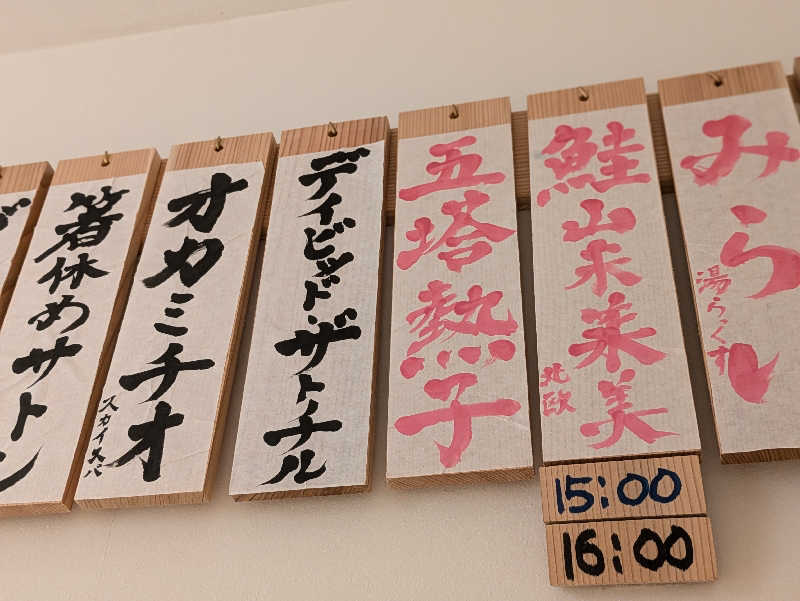 みら
湯らっくす
鮭山未来美
北欧
15:00
16:00
五塔熱子
デイビッド・ザ・トチル
オカミチオ
スカイスパ
箸休めサトシ